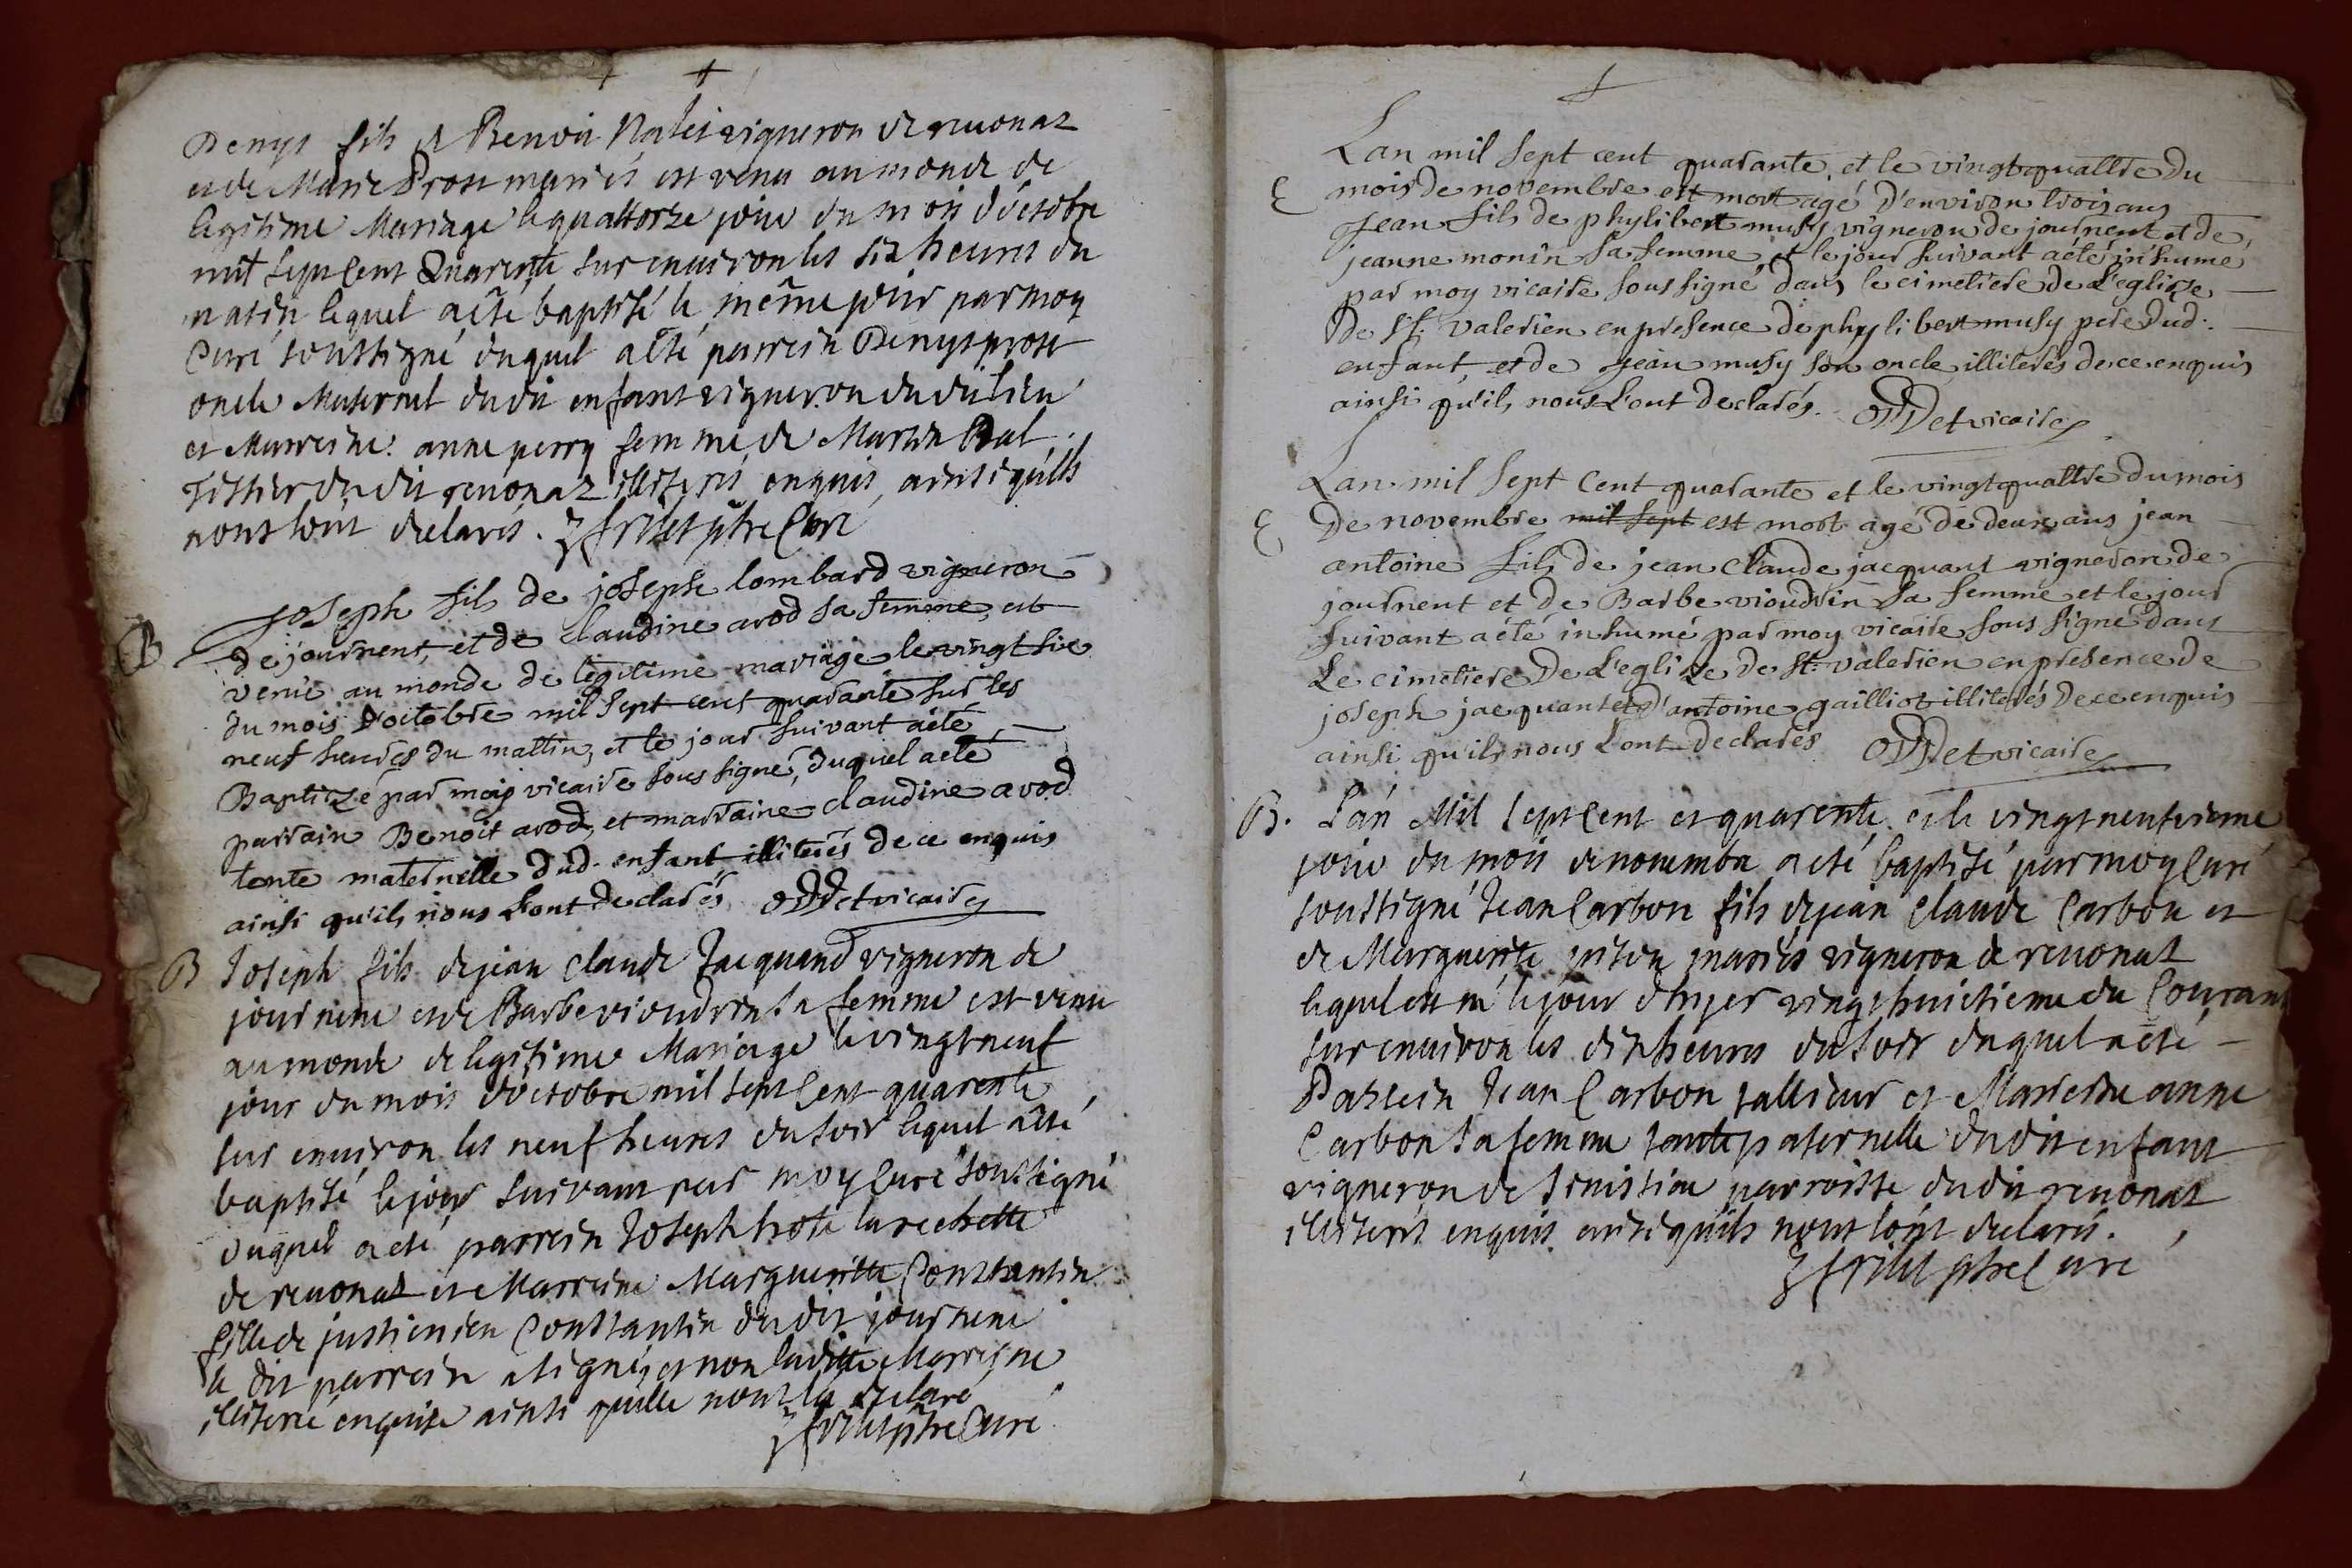 Denys fils de Benoit vigneron de revonaz
et de Marie Prost mariés est venu au monde de
legitime Mariage le quattorze jour du mois d'octobre
mil sept cent Quarente sur environ les six heures du
matin lequel a esté baptisé le même jour par moy
Curé soussigné duquel a esté parrein Denys prost
oncle Maternel du dit enfant vigneron du dit lieu
et Marreine anne perry femme de Martin
du dit revonaz illiterés enquis ainsi qu'ils
nous l'ont declarés. ptre Curé
B Joseph fils de joseph lombard vigneron
de journent, et de Claudine avod sa femme, est
venu au monde de legitime mariage le vingt six
du mois d'octobre mil sept cent quarante sur les
neuf heures du mattin, et le jour suivant a été
Baptizé par moy vicaire sous signé, duquel a eté
parrain Benoit avod, et marraine Claudine avod
tente maternelle dud. enfant illiterés de ce enquis
ainsi qu'ils nous L'ont declarés vicaire
B Joseph fils de jean Claude Jacquand vigneron de
journent et de Barbe vioudrin sa femme est venu
au monde de legitime Mariage le vingt neuf
jour du mois d'octobre mil sept Cent quarente
sur environ les neuf heures du soir lequel a esté
baptisé le jour suivant par moy Curé soussigné
duquel a esté parrein Joseph
de revonaz et Marreine Margueritte Constantin
fille de justinien Constantin du dit journent
le dit parrein a signé, et non laditte Marreyne
illiterée enquise ainsi quelle nous la declaré
ptre Curé
Lan mil sept cent quarante, et le vingt quattre du
mois de novembre est mort agé d'environ trois ans
Jean fils de phylibert musy vigneron de journent et de
jeanne monin sa femme, et le jour suivant a été inhumé
par moy vicaire sous signé dans le cimetiere de L'eglize
de St. valerien en presence de phylibert musy pere dud.
enfant, et de jean musy son oncle illiterés de ce enquis
ainsi qu'ils nous L'ont declarés. vicaire
Lan mil sept Cent quarante et le vingt quattre du mois
De novembre mil sept est mort agé de deux ans jean
antoine fils de jean Claude jacquant vigneron de
journent et de Barbe vioudrin sa femme et le jour
suivant a été inhumé par moy vicaire sous signé dans
Le cimetiere De L'eglize de St. valerien en presence de
joseph jacquant et d'antoine gailliot illiterés de ce enquis
ainsi qu'ils nous L'ont declarés vicaire
B. L'an Mil sept Cent et quarente et le vingt neufvieme
jour du mois de novembre a eté baptisé par moy Curé
soussigné Jean Carbon fils de jean Claude Carbon et
de Marguerite piton mariés vigneron de revonat
lequel est né le jour d'hyer vingt huictieme du Courant
sur environ les dix heures du soir duquel a esté
Parrein Jean Carbon tallieur et Marreine anne
Carbon sa femme tante paternelle du dit enfant
vigneron de parroisse du dit revonat
illiterés enquis ainsi qu'ils nous l'ont declarés.
ptre Curé